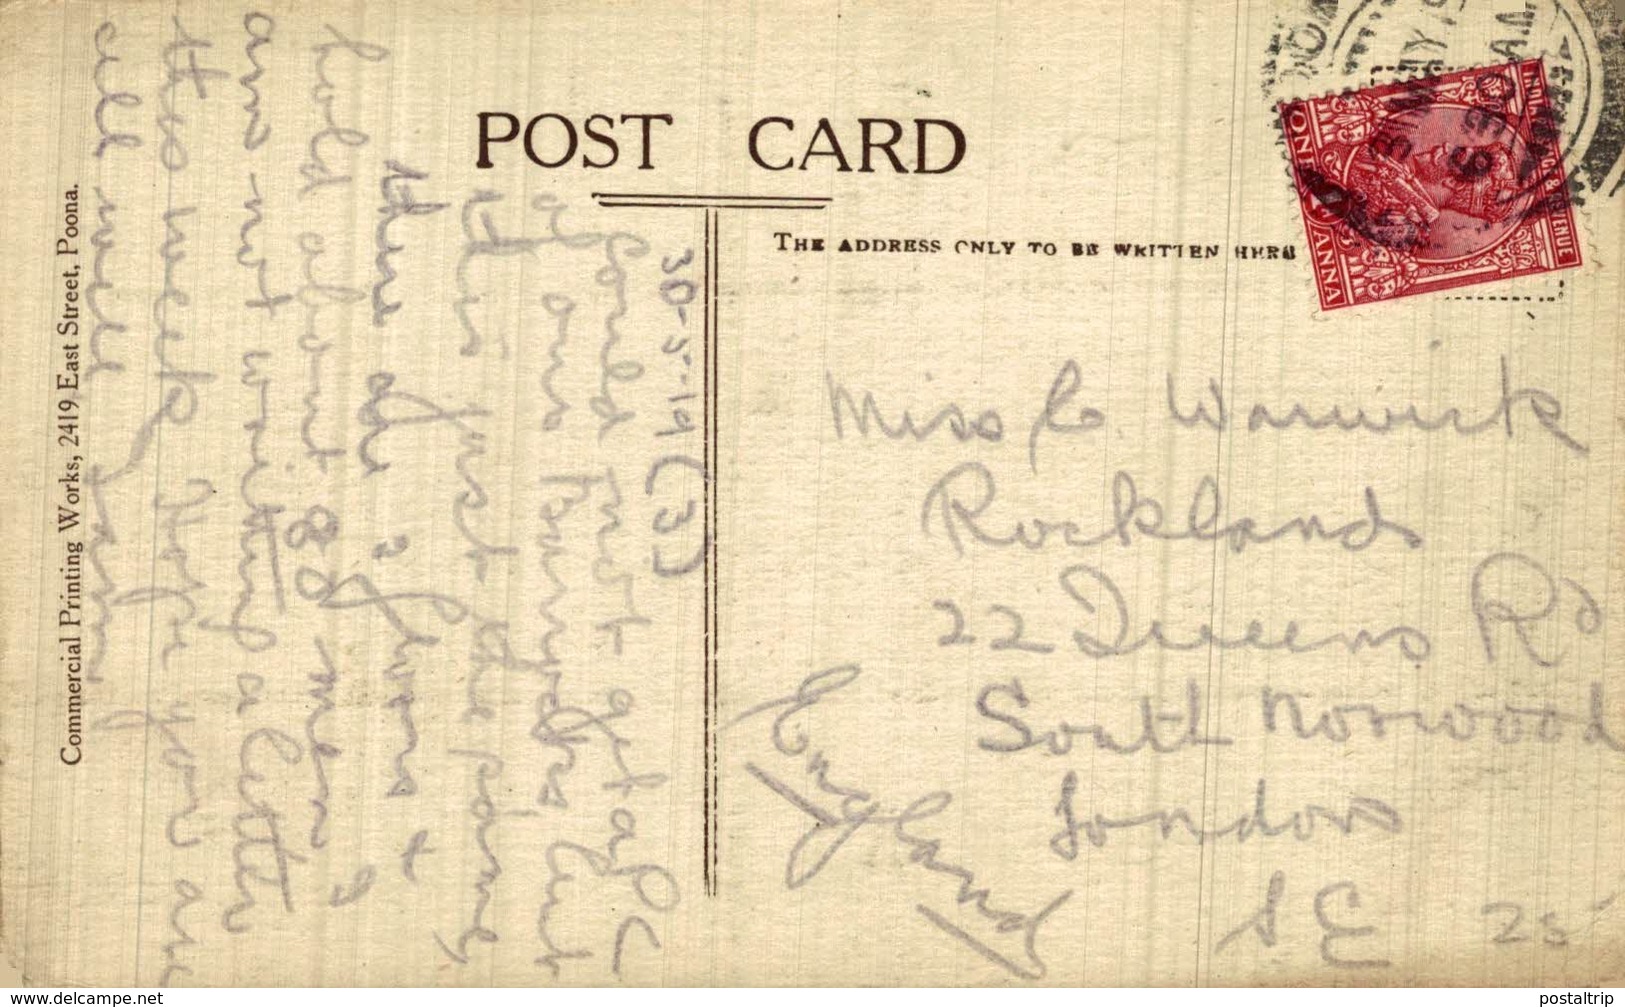 POST CARD
THE ADDRESS ONLY TO BE WRITTEN HERE
Commercial Printing Works, 2419 East Street, Poona.
30-5-19 (3)
Could not get a PC
of our bungalows but
this just the same,
there are 2 floors &
hold about 80 men. I
am not writing a letter
this week Hope you are
all well
Miss C. Warwick
Rocklands
22 Queens Rd
South Norwood
London
S.E 25
England
31 MAY 19
9 30 AM
ONE ANNA
www.delcampe.net
postaltrip